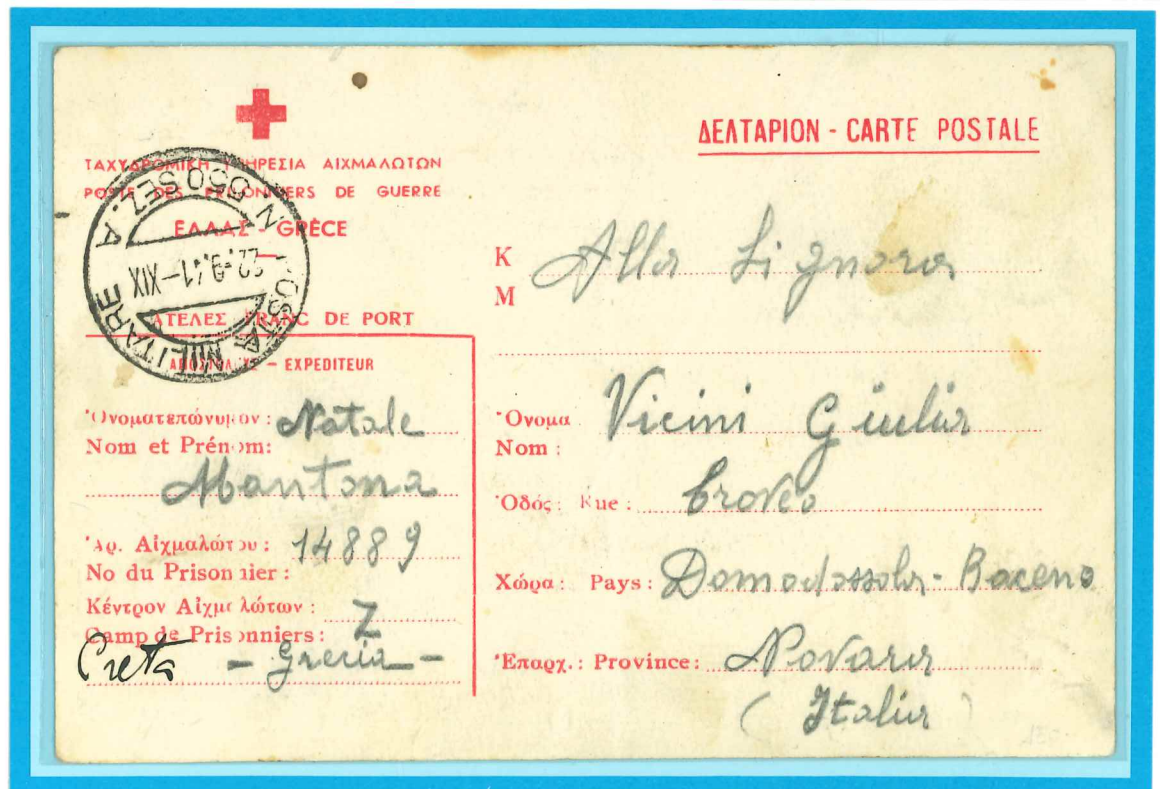 ΔΕΛΤΑΡΙΟΝ - CARTE POSTALE
ΤΑΧΥΔΡΟΜΙΚΗ ΥΠΗΡΕΣΙΑ ΑΙΧΜΑΛΩΤΩΝ
POSTE DES PRISONNIERS DE GUERRE
ΕΛΛΑΣ - GRÈCE
ΑΤΕΛΕΣ FRANC DE PORT
POSTA MILITARE N. 550 SEZ. A
22.9.41-XIX
ΑΠΟΣΤΟΛΕΥΣ - EXPEDITEUR
Ὀνοματεπώνυμον: Natale
Nom et Prénom:
Mantona
Ἀρ. Αἰχμαλώτου: 14889
No du Prisonnier:
Κέντρον Αἰχμαλώτων:
Camp de Prisonniers: Z
Creta - Grecia -
Κ Alla Signora
Μ
Ὄνομα Vicini Giulia
Nom:
Ὁδός: Rue: Croveo
Χώρα: Pays: Domodossola - Baceno
Ἐπαρχ.: Province: Novara
(Italia)